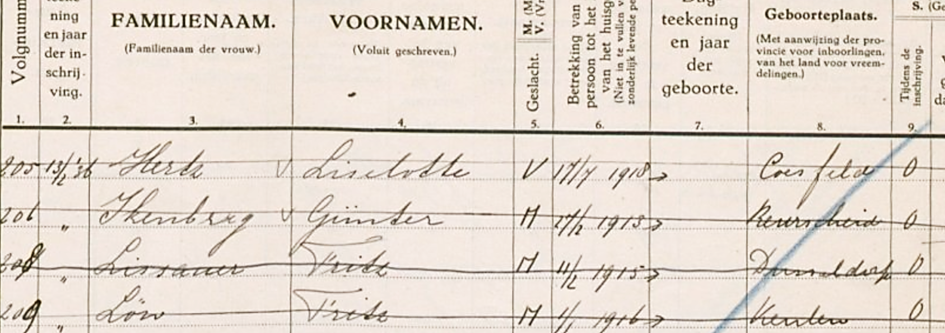 Volgnumm
ning
en jaar
der in-
schrij-
ving.
FAMILIENAAM.
(Familienaam der vrouw.)
VOORNAMEN.
(Voluit geschreven.)
Geslacht. M. V.
Betrekking van
persoon tot het
van het huisg
(Niet in te vullen v
zonderlijk levende pe
teekening
en jaar
der
geboorte.
Geboorteplaats.
(Met aanwijzing der pro-
vincie voor inboorlingen,
van het land voor vreem-
delingen.)
S. (Ge
Tijdens de
inschrijving.
1. 2. 3. 4. 5. 6. 7. 8. 9.
205 13/2 '36 Hertz Liselotte V 17/7 1918 Coesfeld O
206 " Ikenberg Günter M 1913 O
208 " Lissauer Fritz M 11/2 1915 Dusseldorp O
209 " Löw Fritz M 1916 O